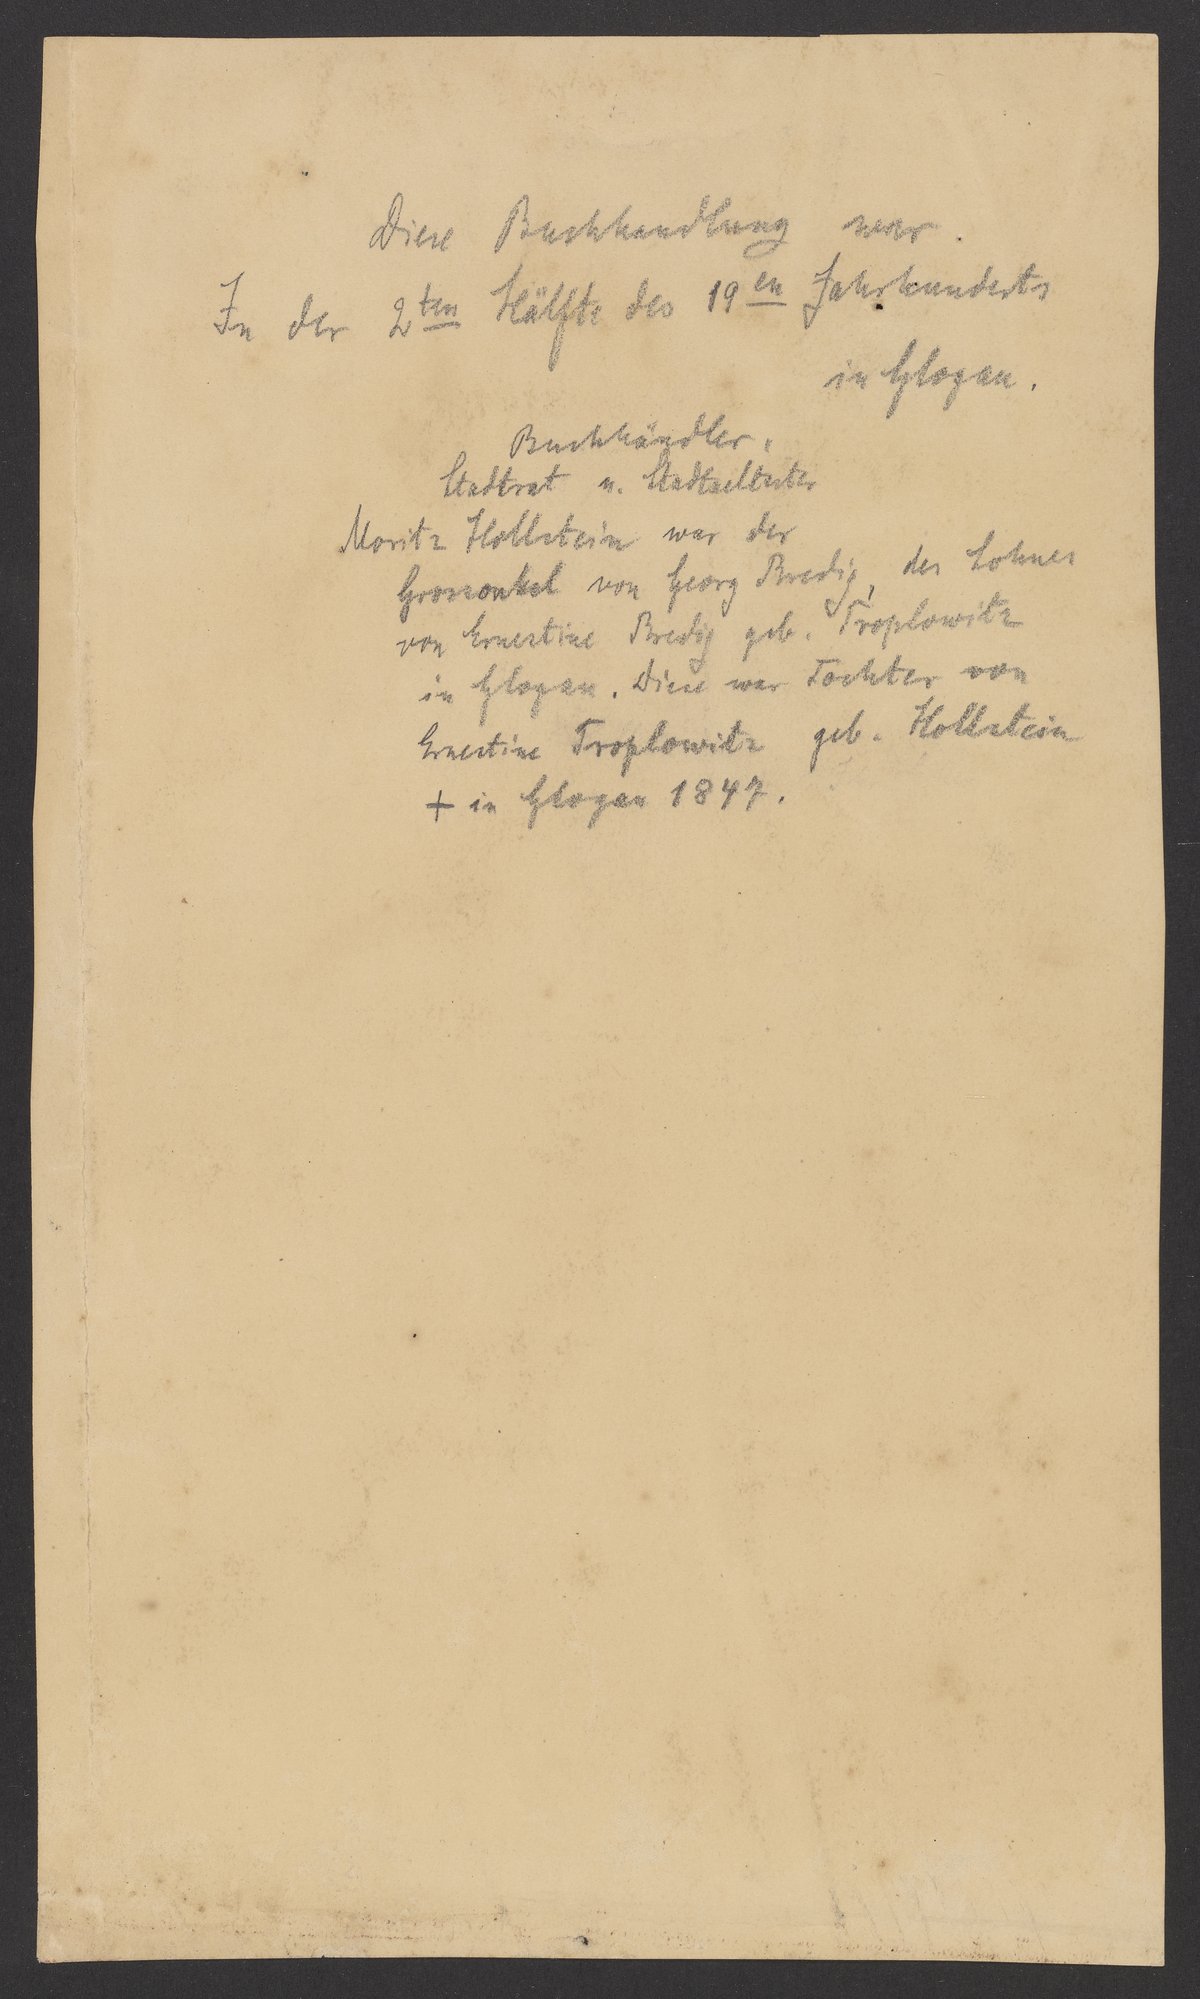 Diese Buchhandlung war
In der 2ten Hälfte des 19en Jahrhunderts
in Glogau.
Buchhändler,
Stadtrat u. Stadtaeltester
Moritz Hollstein war der
Grossonkel von Georg Bredig, des Sohnes
von Ernestine Bredig geb. Troplowitz
in Glogau. Diese war Tochter von
Ernestine Troplowitz geb. Hollstein
+ in Glogau 1847.